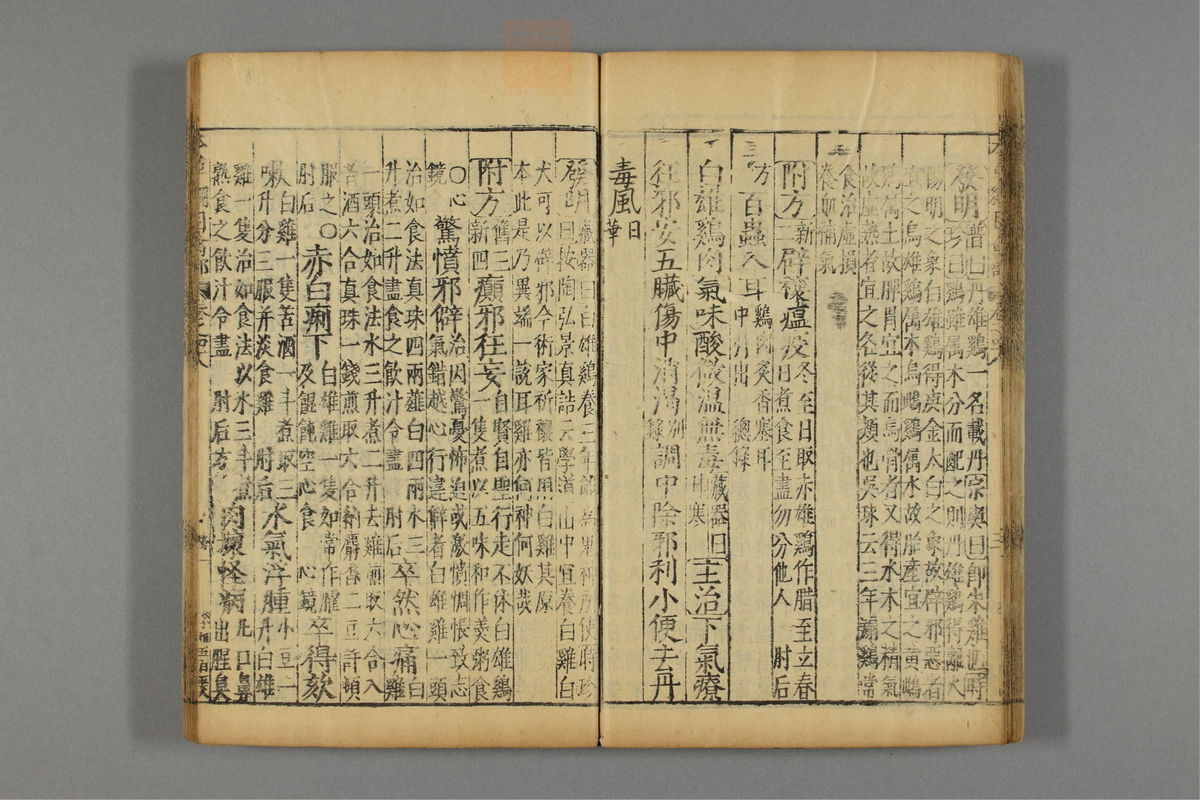 發明 普曰丹雄鷄一名載丹宗奭曰即朱雞也時
珍曰鷄雖属木分而配之則丹雄鷄得離火
陽明之象白雄鷄得庚金太白之象故辟邪惡者
宜之烏雄鷄属木烏雌鷄属水故胎產宜之黃雌
鷄属土故脾胃宜之而烏骨者又得水木之精氣
故虛熱者宜之各從其類也吳球云三年䐗鷄常
食治虛損
養血補氣
附方 新二 辟禳瘟疫 冬至日取赤雄鷄作腊至立春
日煮食至盡勿分他人 肘后
方 百蟲入耳 鷄肉炙香塞耳
中引出 總錄
白雄鷄肉 氣味 酸微溫無毒 藏器曰
甘寒 主治 下氣療
狂邪安五臟傷中消渴 別
錄 調中除邪利小便去丹
毒風 日
華
發明 藏器曰白雄鷄養三年能為鬼神所使時珍
曰按陶弘景真誥云學道山中宜養白雞白
犬可以辟邪今術家祈禳皆用白雞其原
本此是乃異端一說耳雞亦何神何妖哉
附方 舊三
新四 癲邪狂妄 自賢自聖行走不休白雄鷄
一隻煮以五味和作羹粥食
○心
鏡 驚憤邪僻 治因驚憂怖迫或激憤惆悵致志
氣錯越心行違僻者白雄雞一頭
治如食法真珠四兩薤白四兩水三
升煮二升盡食之飲汁令盡 肘后 卒然心痛 白
雞
一頭治如食法水三升煮二升去雞煎取六合入
苦酒六合真珠一錢煎取六合納麝香二豆許頓
服之○
肘后 赤白痢下 白雄雞一隻如常作臛
及餛飩空心食 心鏡 卒得欬
嗽 白雞一隻苦酒一斗煮取三
升分三服并淡食雞 肘后 水氣浮腫 小豆一
升白雄
雞一隻治如食法以水三斗煮
熟食之飲汁令盡 肘后方 肉壞怪病 凡口鼻
出腥臭